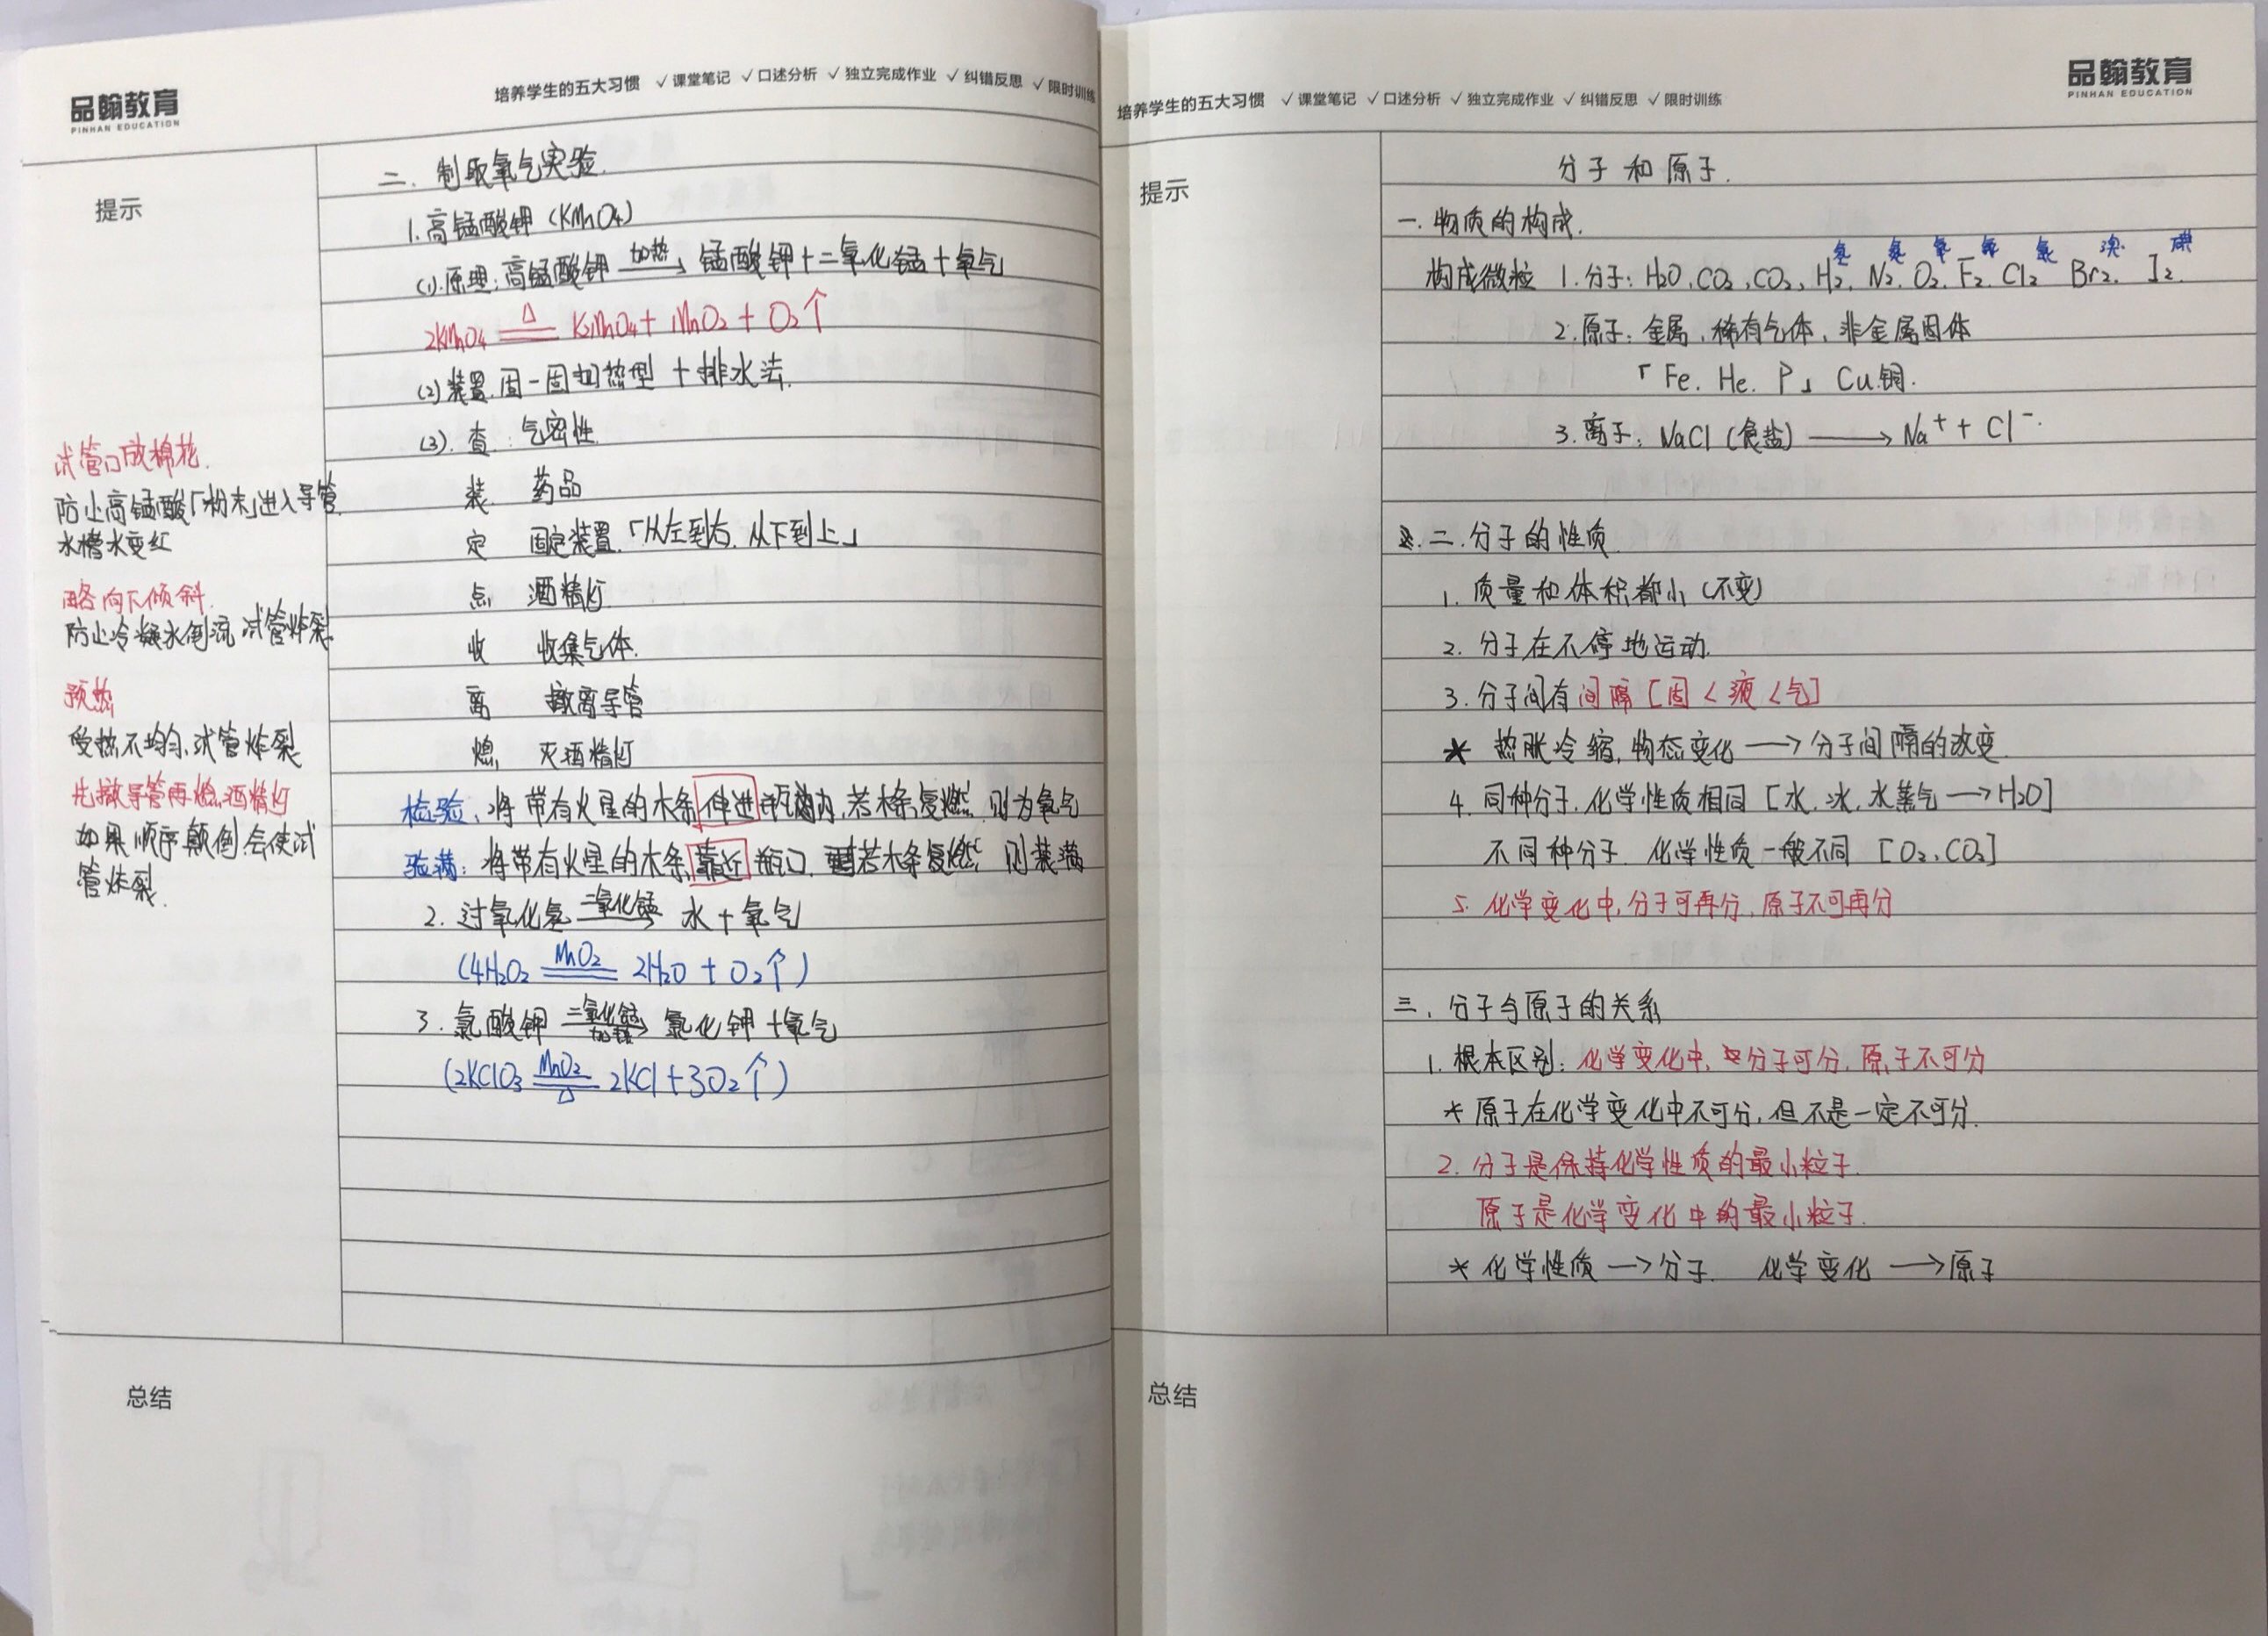 品翰教育
PINHAN EDUCATION
培养学生的五大习惯 √课堂笔记 √口述分析 √独立完成作业 √纠错反思 √限时训练
提示
二. 制取氧气实验.
1.高锰酸钾 (KMnO4)
(1).原理:高锰酸钾 加热→ 锰酸钾+二氧化锰+氧气
2KMnO4 =△= K2MnO4+ MnO2 + O2↑
(2)装置.固-固加热型 +排水法.
(3). 查: 气密性.
装. 药品
定 固定装置.「从左到右.从下到上」
点 酒精灯.
收 收集气体.
离 撤离导管
熄 灭酒精灯
检验:将带有火星的木条伸进瓶内,若木条复燃,则为氧气
验满:将带有火星的木条靠近瓶口,若木条复燃,则装满
2. 过氧化氢 二氧化锰→ 水+氧气
(4H2O2 =MnO2= 2H2O + O2↑)
3. 氯酸钾 二氧化锰 加热→ 氯化钾+氧气
(2KClO3 =MnO2 △= 2KCl+3O2↑)
试管口放棉花.
防止高锰酸「粉末」进入导管.
水槽水变红
略向下倾斜.
防止冷凝水倒流 试管炸裂.
预热
受热不均匀.试管炸裂
先撤导管再熄酒精灯
如果顺序颠倒会使试
管炸裂.
总结
培养学生的五大习惯 √课堂笔记 √口述分析 √独立完成作业 √纠错反思 √限时训练
品翰教育
PINHAN EDUCATION
提示
分子和原子.
一.物质的构成.
氢 氮 氧 氟 氯 溴 碘
构成微粒 1.分子: H2O.CO2,CO2, H2. N2. O2. F2. Cl2 Br2. I2.
2.原子: 金属,稀有气体,非金属固体
「Fe. He. P」 Cu.铜.
3.离子: NaCl (食盐) → Na⁺ + Cl⁻.
二.分子的性质.
1. 质量和体积都小(不变)
2. 分子在不停地运动.
3. 分子间有间隔[固<液<气]
* 热胀冷缩,物态变化→分子间隔的改变.
4. 同种分子.化学性质相同[水.冰.水蒸气→H2O]
不同种分子. 化学性质一般不同 [O2、CO2]
5. 化学变化中,分子可再分,原子不可再分
三. 分子与原子的关系
1. 根本区别: 化学变化中,分子可分,原子不可分
* 原子在化学变化中不可分,但不是一定不可分.
2. 分子是保持化学性质的最小粒子.
原子是化学变化中的最小粒子.
* 化学性质→分子. 化学变化→原子
总结